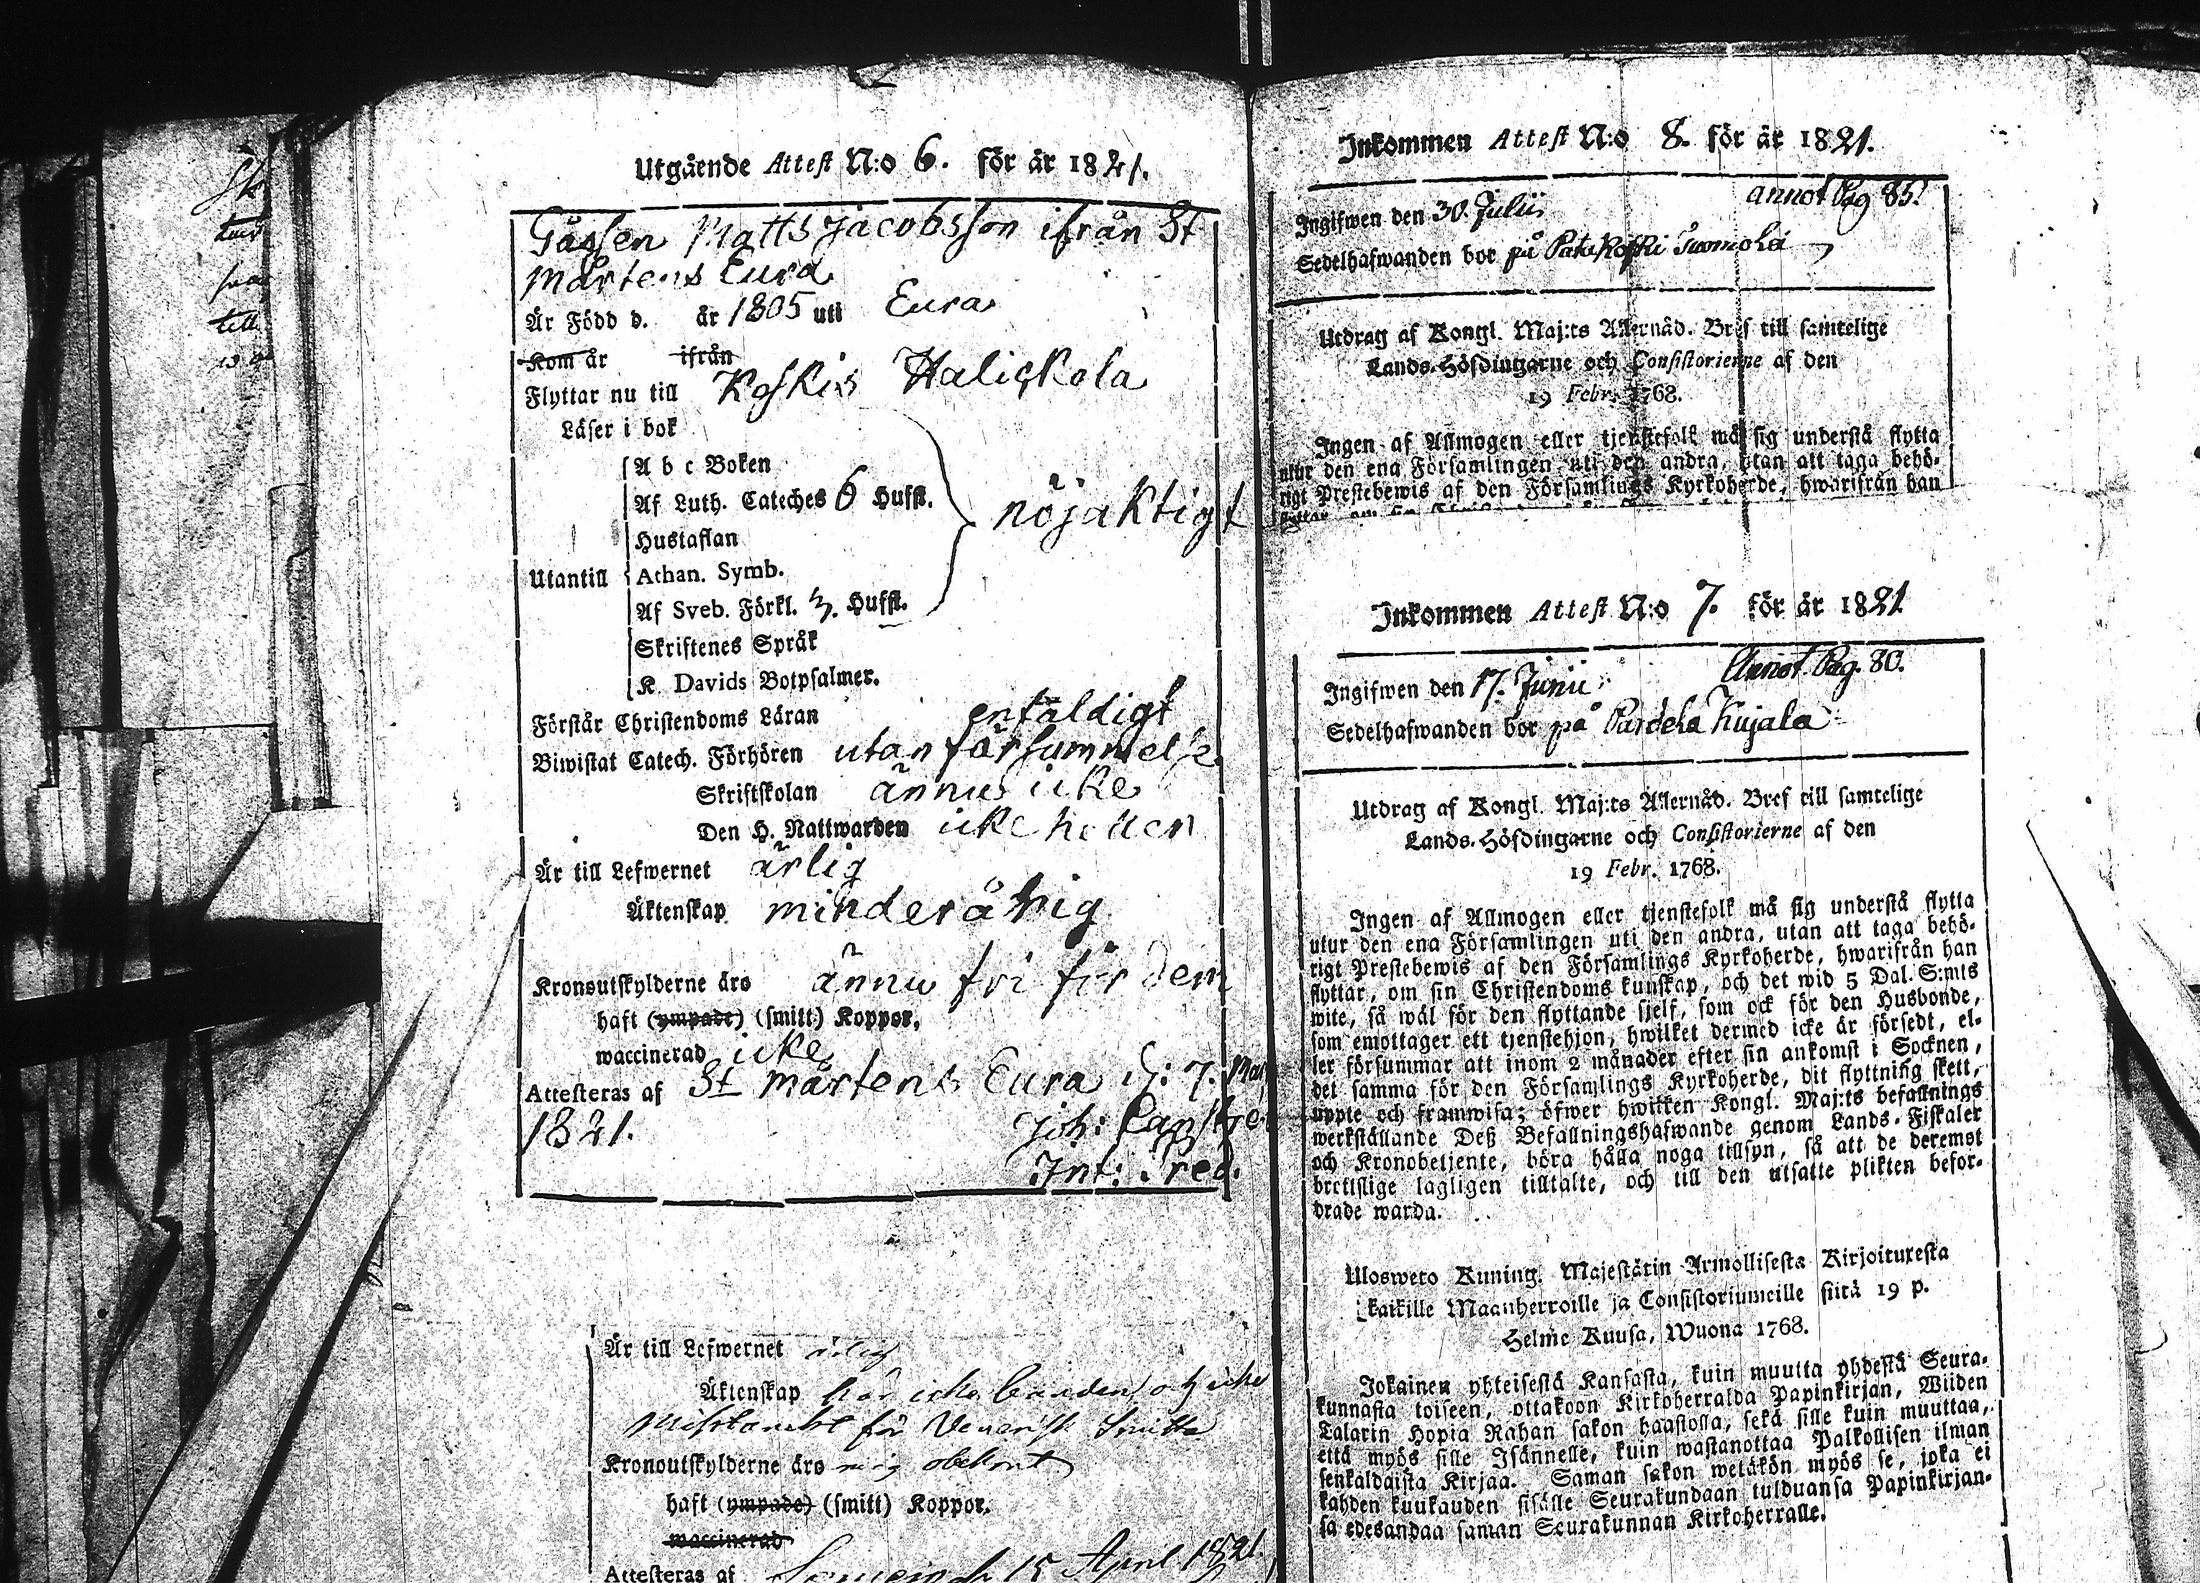 Utgående Attest N:o 6. för år 1821.
Gåssen Matts Jacobsson ifrån St
Mårtens Eura
Är Född d. år 1805 uti Eura
Kom år ifrån
Flyttar nu till Koskis Halickola
Läser i bok
A b c Boken
Af Luth. Cateches 6 Hufst.
nöjaktigt
Hustaflan
Utantill
Athan. Symb.
Af Sveb. Förkl. 3. Hufst.
Skriftenes Språk
K. Davids Botpsalmer.
Förstår Christendoms Läran enfäldigt
Biwistat Catech. Förhören utan försummelse
Skriftskolan ännu icke
Den H. Nattwarden icke heller
Är till Lefwernet ärlig
Äktenskap minderårig
Kronoutskylderne äro ännu fri för dem
haft (ympade) (smitt) Koppor.
waccinerad icke
Attesteras af St Mårtens Eura d: 7. Maj
1821. Joh:
Int: Pred.
Är till Lefwernet ärlig
Äktenskap här icke bunden och icke
misstänkt för Venerisk Smitta
Kronoutskylderne äro mig obekant
haft (ympade) (smitt) Koppor.
waccinerad
Attesteras af 15 April 1821.
Inkommen Attest N:o 8. för år 1821.
annot Pag 85.
Ingifwen den 30. Julii
Sedelhafwanden bor på Patakoski Suomela
Utdrag af Kongl. Maj:ts Allernåd. Bref till samtelige
Lands-Höfdingarne och Consistorierne af den
19 Febr. 1768.
Ingen af Allmogen eller tjenstefolk må sig understå flytta
utur den ena Församlingen uti den andra, utan att taga behö-
rigt Prestebewis af den Församlings Kyrkoherde, hwarifrån han
Inkommen Attest N:o 7. för år 1821
Annot. Pag. 80.
Ingifwen den 17. Junii
Sedelhafwanden bor på Pardela Kujala
Utdrag af Kongl. Maj:ts Allernåd. Bref till samtelige
Lands-Höfdingarne och Consistorierne af den
19 Febr. 1768.
Ingen af Allmogen eller tjenstefolk må sig understå flytta
utur den ena Församlingen uti den andra, utan att taga behö-
rigt Prestebewis af den Församlings Kyrkoherde, hwarifrån han
flyttar, om sin Christendoms kunskap, och det wid 5 Dal. S:mts
wite, så wäl för den flyttande sjelf, som ock för den Husbonde,
som emottager ett tjenstehjon, hwilket dermed icke är försedt, el-
ler försummar att inom 2 månader efter sin ankomst i Socknen,
det samma för den Församlings Kyrkoherde, dit flyttning skett,
uppte och framwisa; öfwer hwilken Kongl. Maj:ts befallnings
werkställande Deß Befallningshafwande genom Lands-Fiskaler
och Kronobetjente, böra hålla noga tillsyn, så att de deremot
bretslige lagligen tilltalte, och till den utsatte plikten befor-
drade warda.
Ulosweto Kuning. Majestätin Armollisesta Kirjoituxesta
kaikille Maanherroille ja Consistoriumeille siitä 19 p.
Helme Kuusa, Wuona 1768.
Jokainen yhteisestä Kansasta, kuin muutta yhdestä Seura-
kunnasta toiseen, ottakoon Kirkoherralda Papinkirjan, Wiiden
Talarin Hopia Rahan sakon haastolla, sekä sille kuin muuttaa,
että myös sille Isännelle, kuin wastanottaa Palkollisen ilman
senkaldaista Kirjaa. Saman sakon wetäkön myös se, joka ei
kahden kuukauden sisälle Seurakundaan tulduansa Papinkirjan-
sa edesandaa saman Seurakunnan Kirkoherralle.